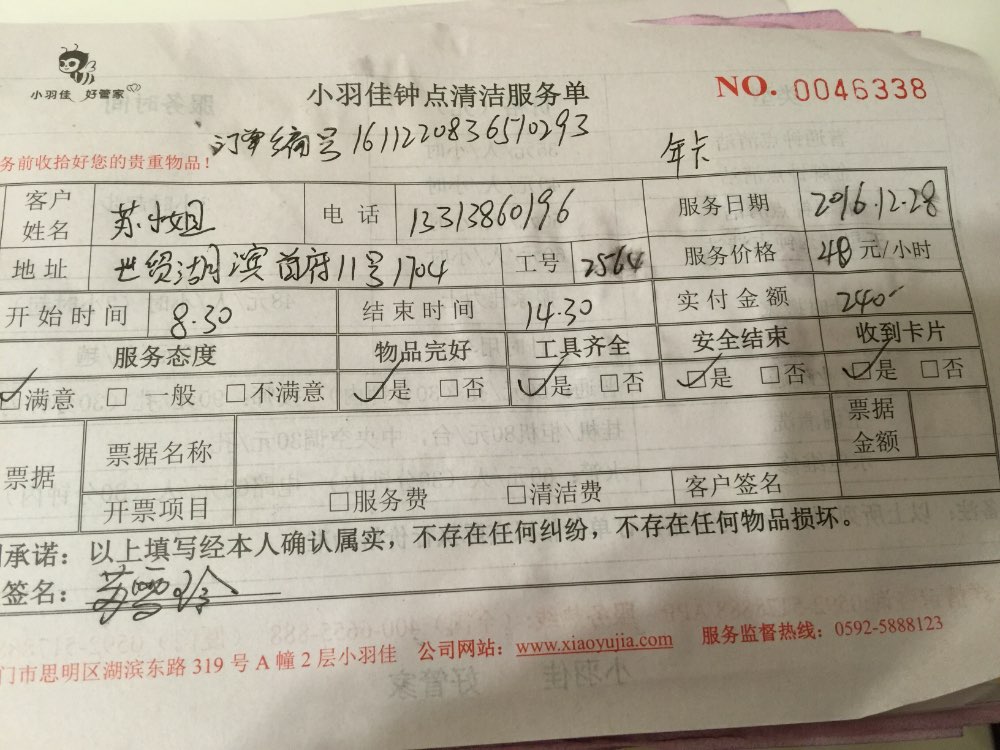 小羽佳 好管家
小羽佳钟点清洁服务单
NO. 0046338
订单编号 1611220836510293
年卡
务前收拾好您的贵重物品！
客户姓名 苏小姐 电话 13313860196 服务日期 2016.12.28
地址 世贸湖滨首府11号1704 工号 2564 服务价格 48元/小时
开始时间 8.30 结束时间 14.30 实付金额 240-
服务态度 物品完好 工具齐全 安全结束 收到卡片
☑满意 □一般 □不满意 ☑是 □否 ☑是 □否 ☑是 □否 ☑是 □否
票据 票据名称 票据金额
开票项目 □服务费 □清洁费 客户签名
承诺：以上填写经本人确认属实，不存在任何纠纷，不存在任何物品损坏。
签名：
门市思明区湖滨东路 319 号 A 幢 2 层小羽佳 公司网站：www.xiaoyujia.com 服务监督热线：0592-5888123